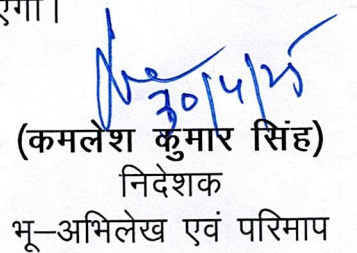 एगा।
30/4/25
(कमलेश कुमार सिंह)
निदेशक
भू–अभिलेख एवं परिमाप